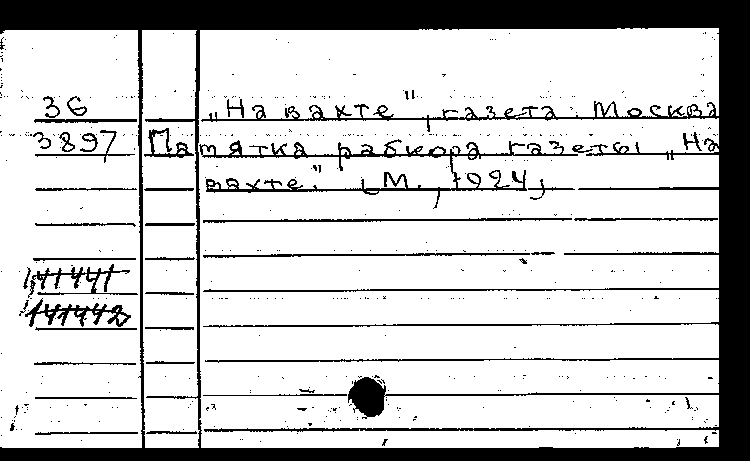 36 „На вахте", газета. Москва
3897 Памятка рабкора газеты „На
вахте." [М., 1924]
141441
141442